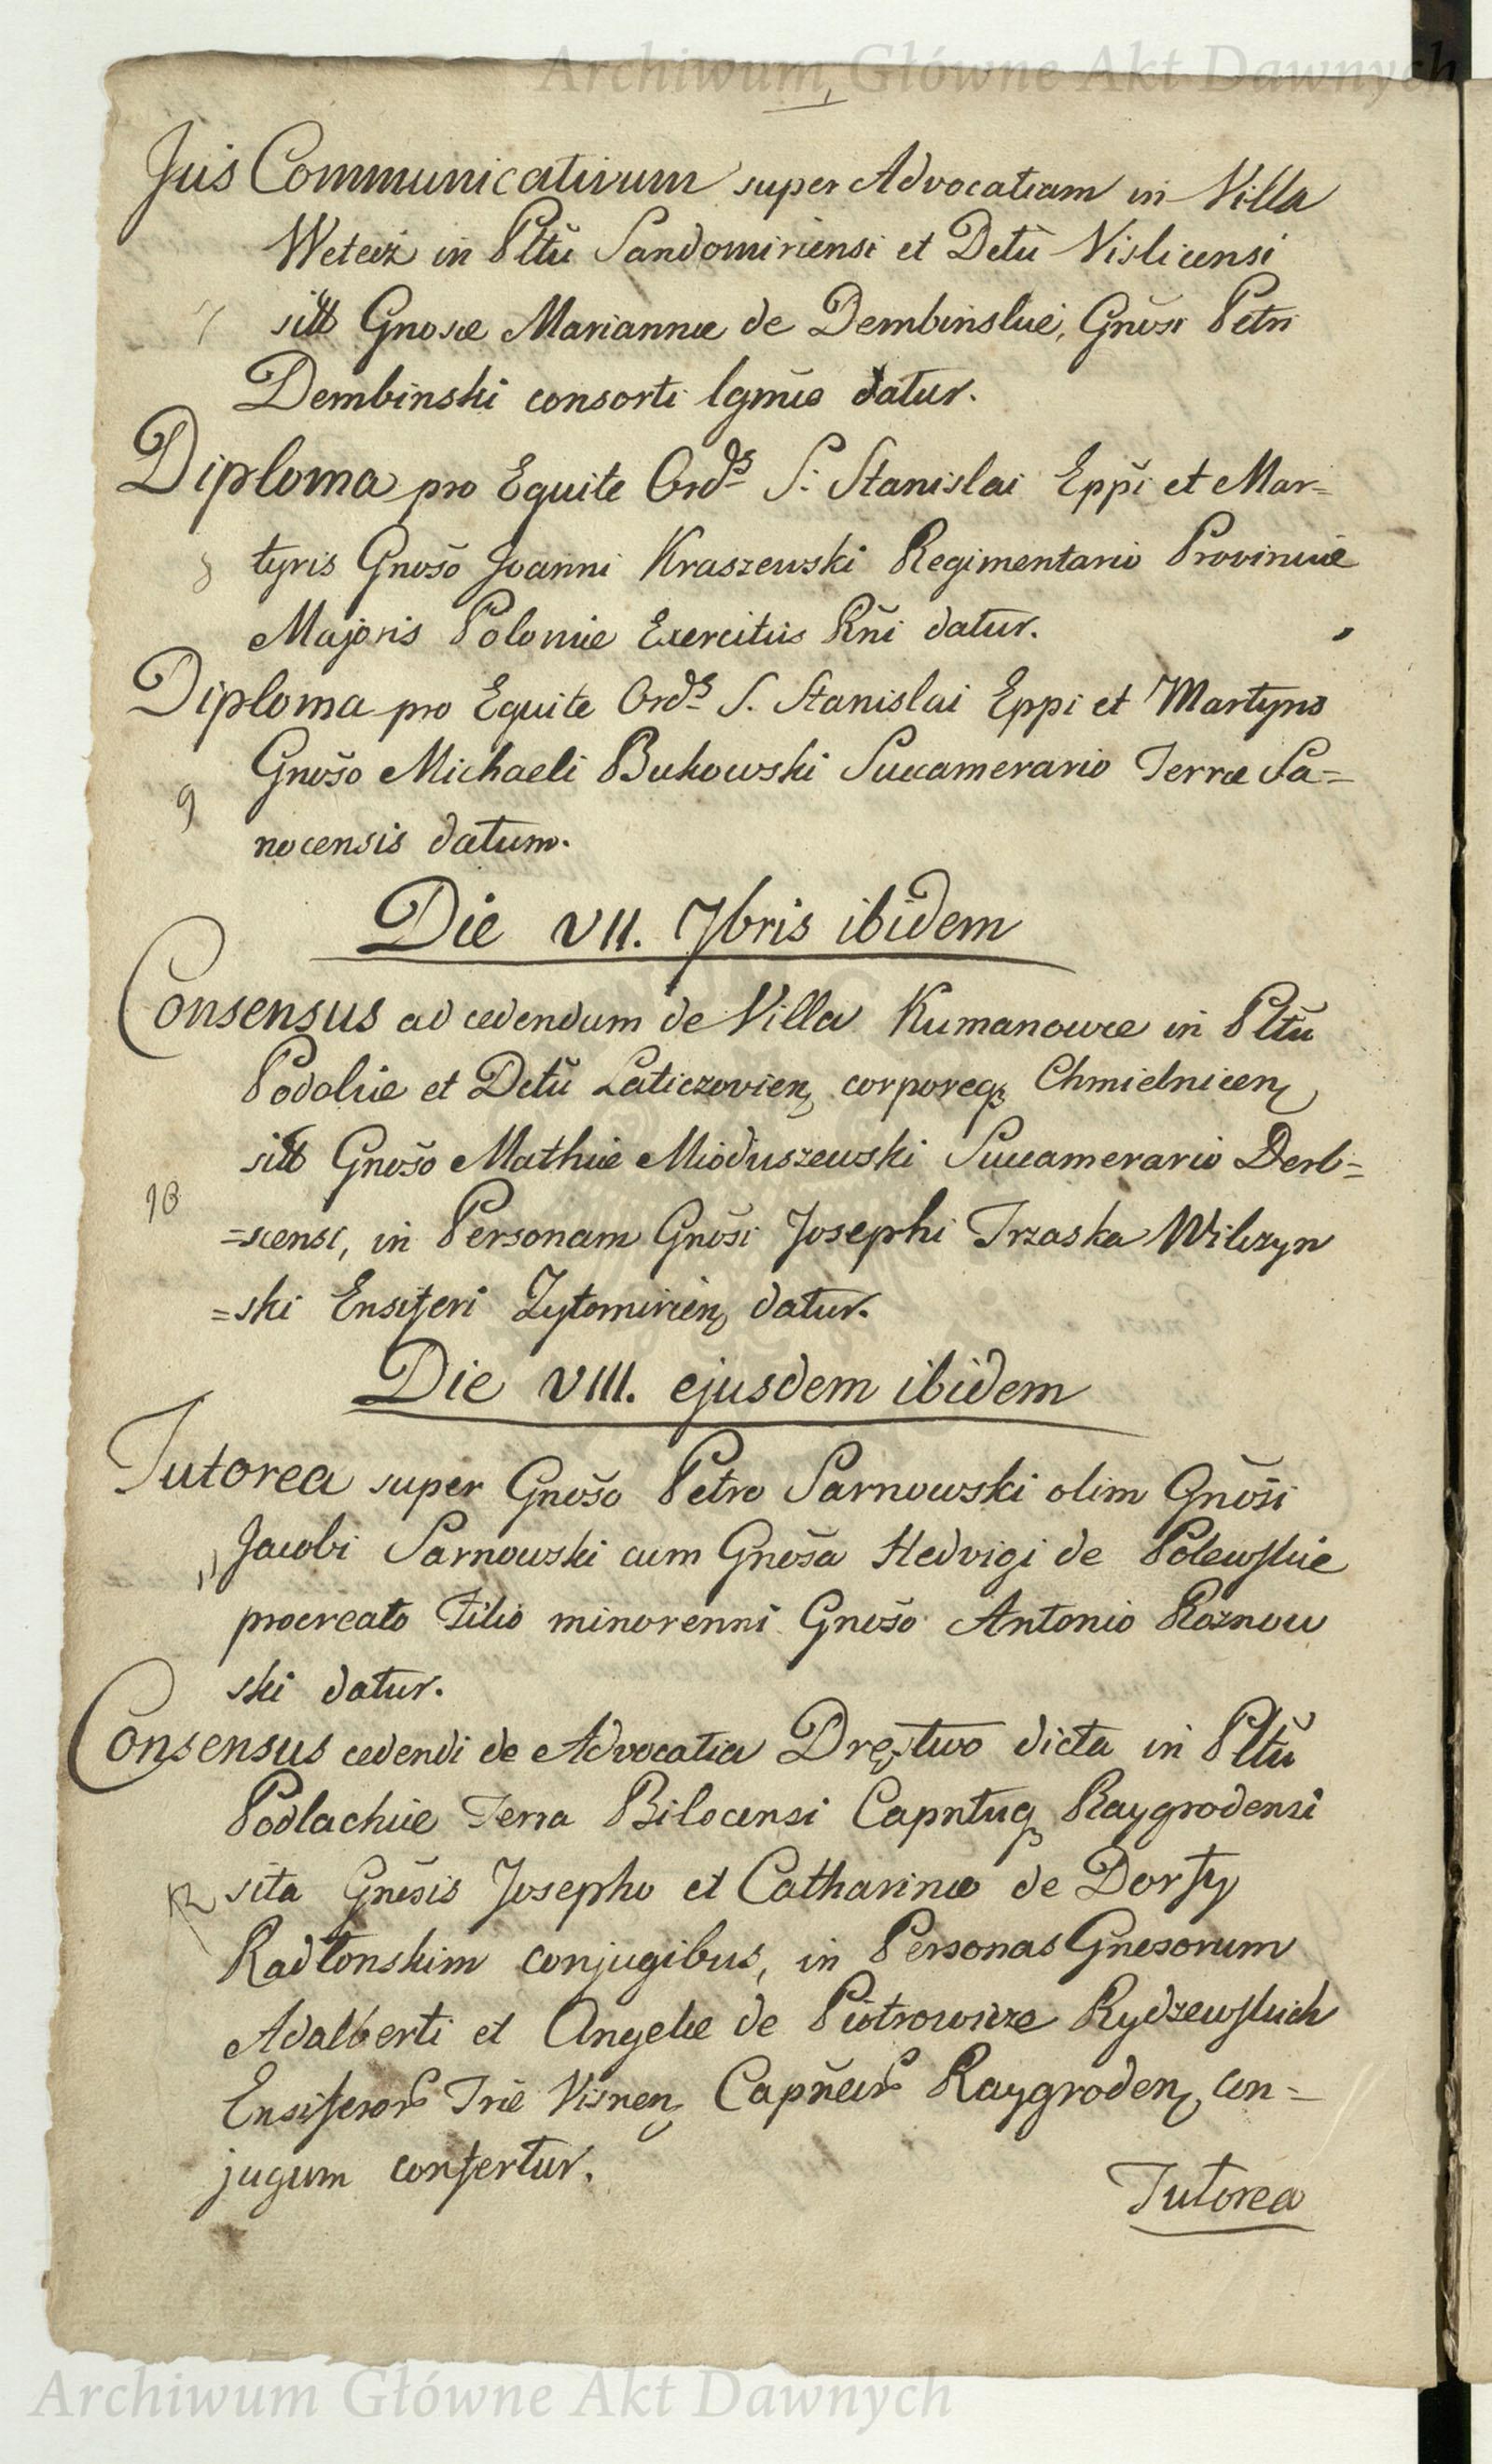 Archiwum Główne Akt Dawnych
Jus Communicativum super Advocatiam in Villa
in Pltũ Sandomiriensi et Dctũ Vislicensi
7 Gnosæ Mariannæ de Dembinskie, Gnõsi Petri
Dembinski consorti datur.
Diploma pro Equite Ord̃s S. Stanislai Epp̃i et Mar=
8 tyris Gnõso Joanni Kraszewski Regimentario Provinciæ
Majoris Poloniæ Exercitus Rñi datur.
Diploma pro Equite Ord̃s S. Stanislai Eppi et Martyris
Gnõso Michaeli Bukowski Succamerario Terræ Sa=
9
nocensis datum.
Die VII. 7bris ibidem
Consensus ad cedendum de Villa Kumanowce in Pltũ
Podoliæ et Dctũ Laticzovien corporeq Chmielnicen
Gnõso Mathiæ Mioduszewski Succamerario Derb=
10
=scensi, in Personam Gnõsi Josephi Trzaska Wilczyn
=ski Ensiferi Zytomirien datur.
Die VIII. ejusdem ibidem
Tutorea super Gnõso Petro Sarnowski olim Gnõsi
11 Jacobi Sarnowski cum Gnõsa Hedvigi de Polewskie
procreato Filio minorenni Gnõso Antonio Roznow
ski datur.
Consensus cedendi de Advocatia Dręstwo dicta in Pltũ
Podlachiæ Terra Bilscensi Capntuq Raygrodensi
12 sita Gnõsis Josepho et Catharinæ de Dorsy
Radtonskim conjugibus, in Personas Gnesorum
Adalberti et Angelæ de Piotrowicze Rydzewskich
Ensiferor Tr̃iæ Visnen Capñear Raygroden con=
jugum confertur.
Tutorea
Archiwum Główne Akt Dawnych